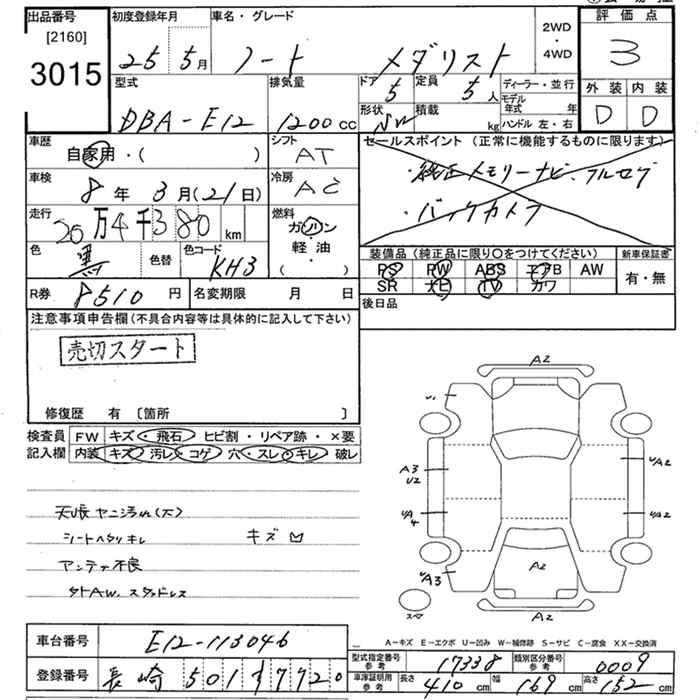 出品番号
[2160]
3015
初度登録年月
25 5月
車名・グレード
ノート メダリスト
2WD
・
4WD
評価点
3
型式
DBA-E12
排気量
1200 cc
ドア
5
定員
5人
形状
積載
kg
ディーラー・並行
モデル年式 年
ハンドル 左・右
外装 内装
D D
車歴
自家用・( )
シフト
AT
車検
8年3月(21日)
冷房
AC
走行
20万4千380 km
燃料
ガソリン
軽・油
・( )
色
黒
色替
色コード
KH3
セールスポイント (正常に機能するものに限ります)
・純正メモリーナビ、フルセグ
・バックカメラ
装備品 (純正品に限り○をつけてください)
新車保証書
PS PW ABS エアB AW
SR ナビ TV カワ
有・無
R券 8510 円
名変期限 月 日
後日品
注意事項申告欄 (不具合内容等は具体的に記入して下さい)
売切スタート
修復歴 有 [箇所 ]
検査員
記入欄
FW キズ・飛石・ヒビ割・リペア跡・×要
内装 キズ・汚レ・コゲ・穴・スレ・キレ・破レ
天張ヤニ汚れ(大)
シートヘタリキレ
キズ凹
アンテナ不良
社外AW、スタッドレス
A2
A3
U2
A2
A3
A2
A2
スペア
A-キズ E-エクボ U-凹み W-補修跡 S-サビ C-腐食 XX-交換済
車台番号 E12-113046
登録番号 長崎 501 7720
型式指定番号
参考
17338
類別区分番号
参考
0009
車庫証明用
参考
長さ 410 cm 幅 169 cm 高さ 152 cm